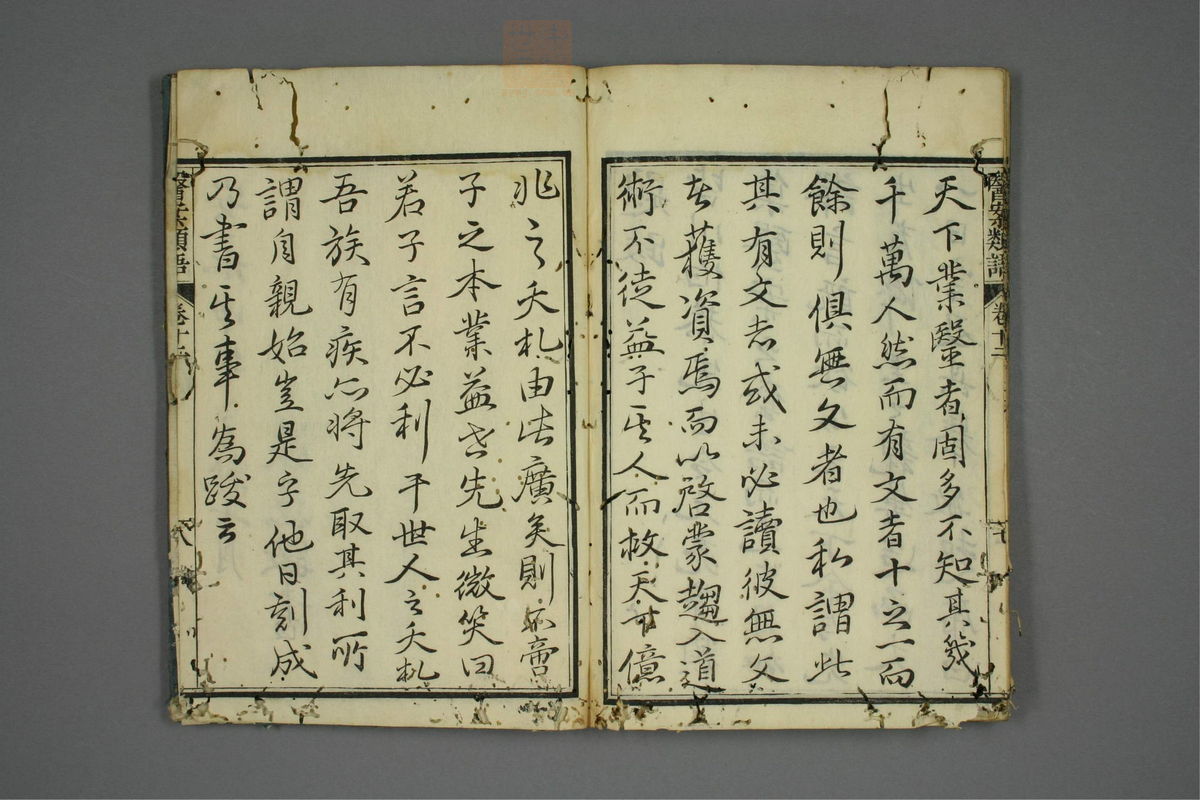 醫案類語 卷十二 七
天下業醫者固多不知其幾
千萬人然而有文者十之一而
餘則俱無文者也私謂此
其有文者或未必讀彼無文
者獲資焉而以啓蒙趨入道
術不徒益子其人而救天下億
兆之夭札由此廣矣則不啻
子之本業益也先生微笑曰
若子言不必利于世人之夭札
吾族有疾亦將先取其利所
謂自親始豈是乎他日刻成
乃書其事為跋云
醫案類語 卷十二 八